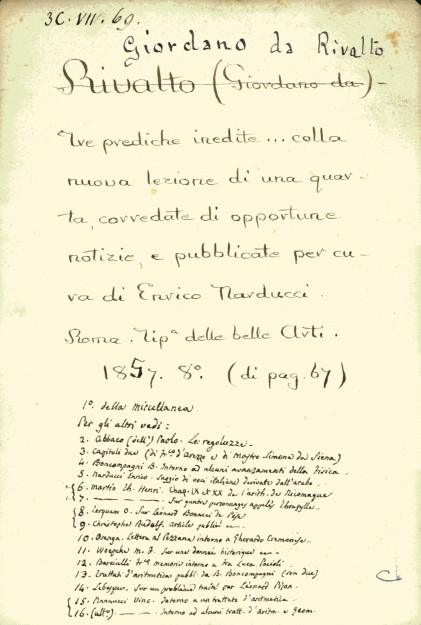 3C. VII. 69.
Giordano da Rivalto
Rivalto (Giordano da) -
Tre prediche inedite ... colla
nuova lezione di una quar-
ta, corredate di opportune
notizie, e pubblicate per cu-
ra di Enrico Narducci.
Roma. Tipª delle belle Arti.
1857. 8º. (di pag. 67)
1º. della miscellanea
Per gli altri vedi:
2. Abbaco (dell') Paolo. Le regoluzze -
3. Capitoli due (di Frº d'Arezzo e di Mastro Simone da Siena)
4. Boncompagni B. Intorno ad alcuni avanzamenti della fisica -
5. Narducci Enrico. Saggio di voci italiane derivate dall'arabo.
6. Martin Th. Henri. Chap. IX et XX de l'arith. de Nicomaque
7. — Sur quatre personnages appelés Thrasylle.
8. Terquem O. Sur Léonard Bonacci de Pise
9. Christophe Rudolf. Article publié
10. Oranga. Lettera al Pezzana intorno a Gherardo Cremonese.
11. Woepcke M. F. Sur une donnée historique
12. Barciulli Frº memorie intorno a fra Luca Pacioli
13. Trattati d'aritmetica pubbl. da B. Boncompagni (son due)
14. Lebesgue. Sur un problème traité par Léonard Pisan.
15. Nannucci Vinc. Intorno a un trattato d'aritmetica -
16. (altº) — Intorno ad alcuni tratt. d'aritm. e geom.